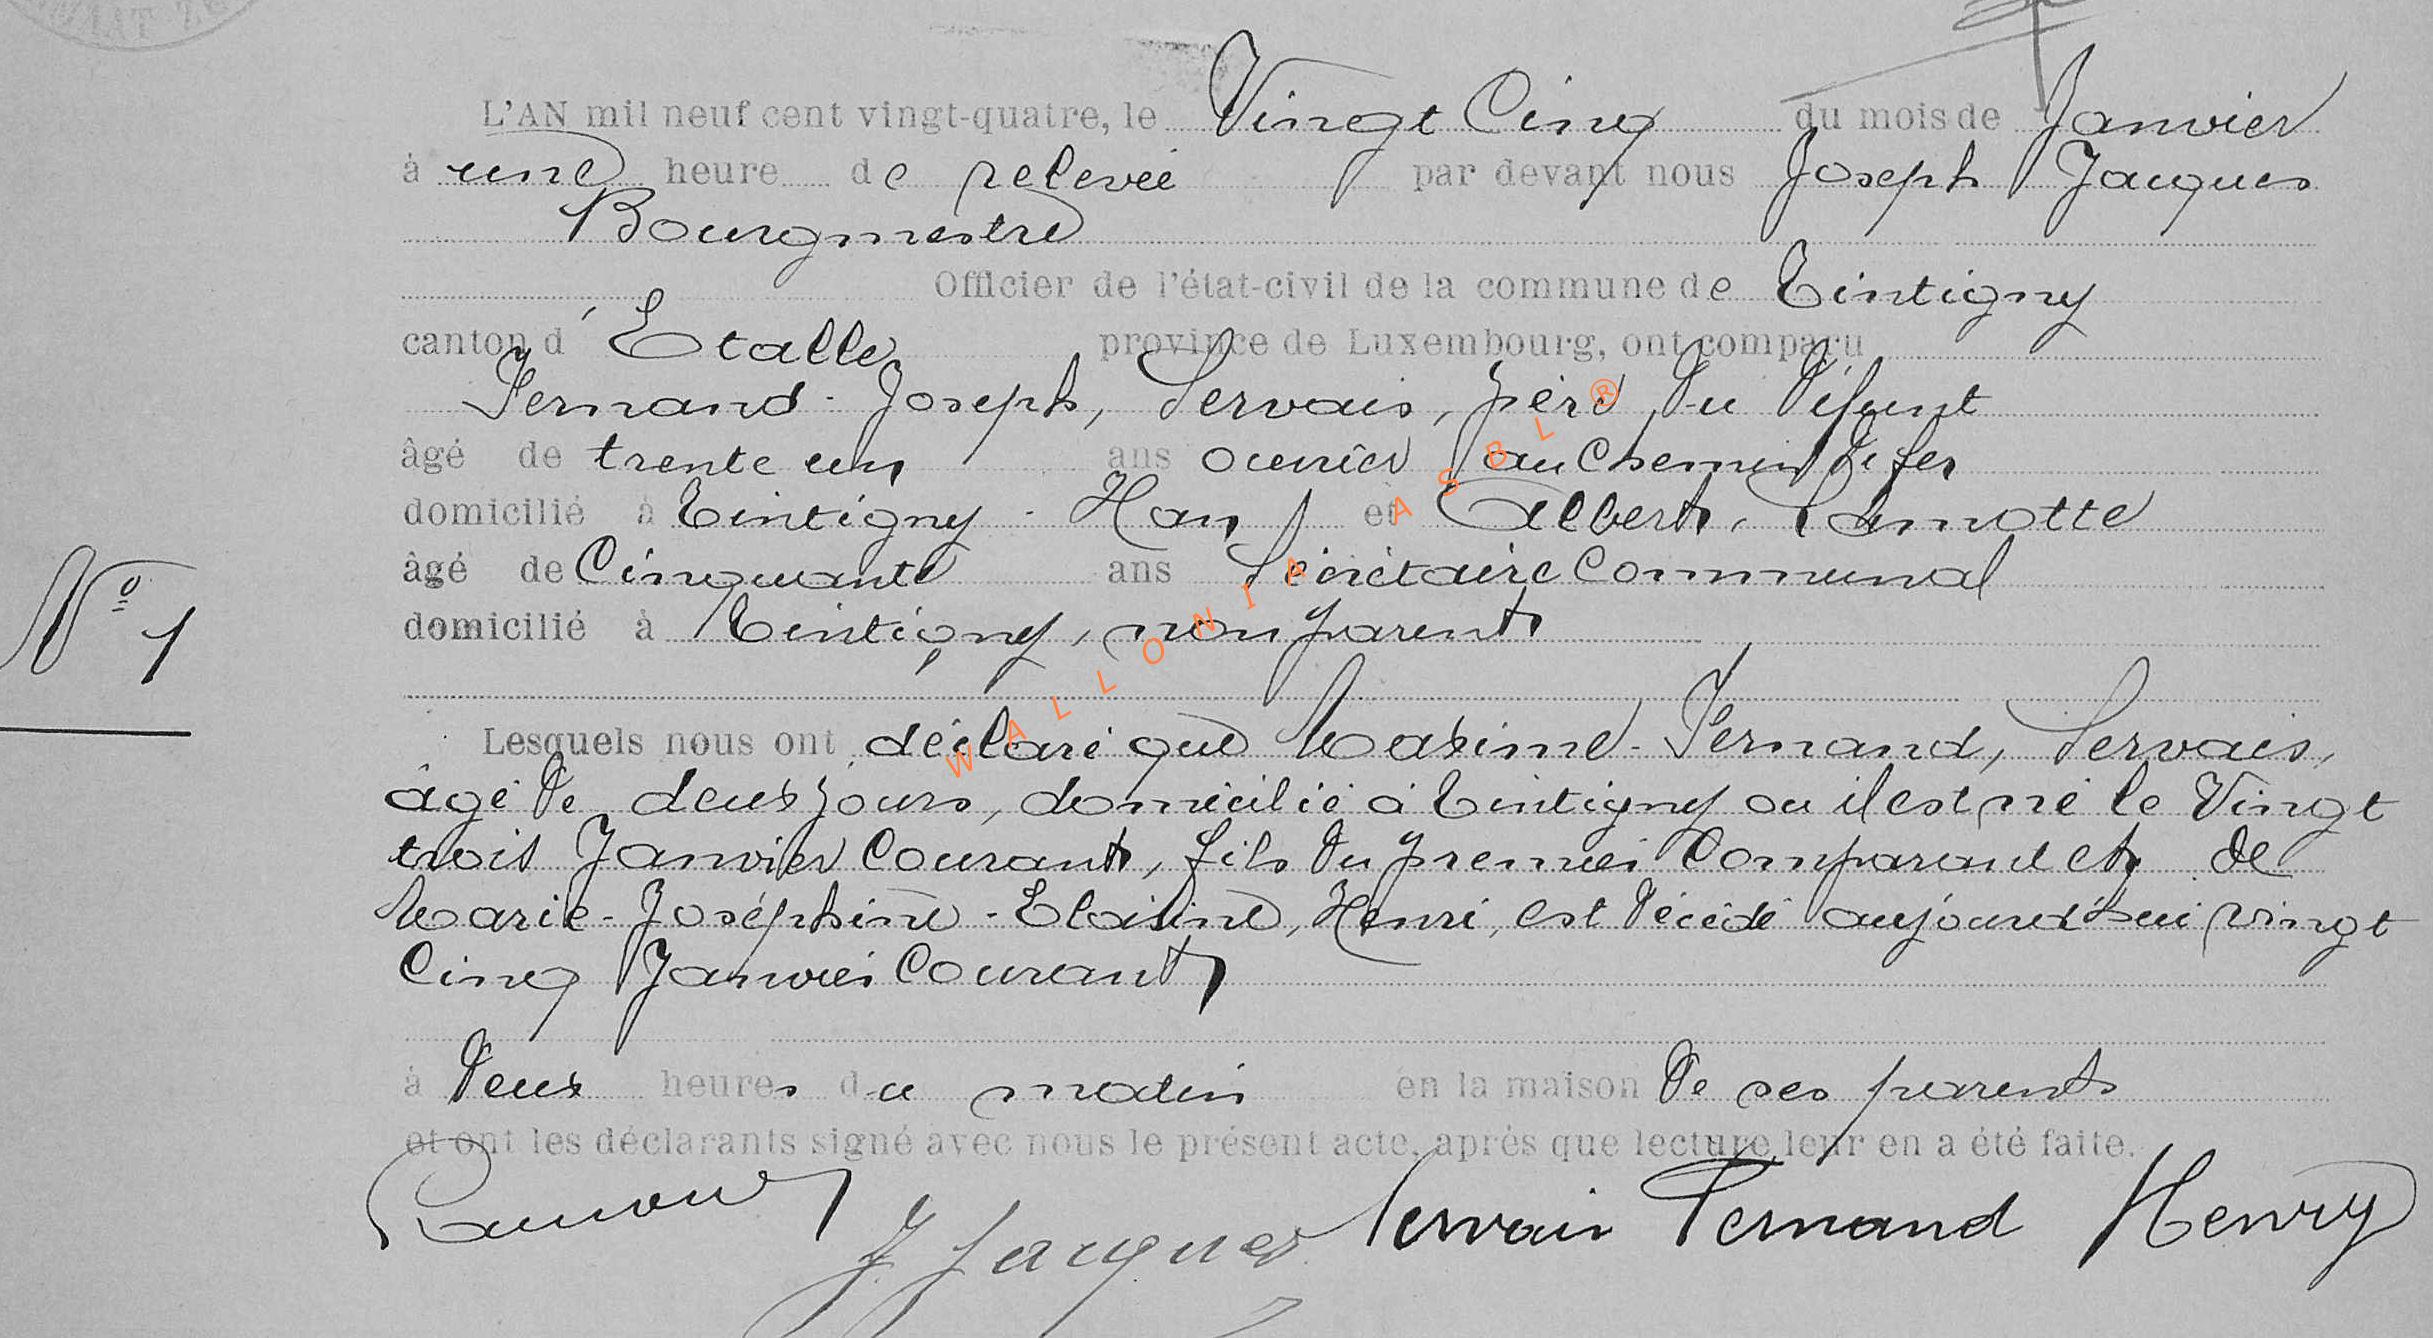 L'AN mil neuf cent vingt-quatre, le Vingt Cinq du mois de Janvier
à une heure de relevée par devant nous Joseph Jacques
Bourgmestre
Officier de l'état-civil de la commune de Tintigny
canton d'Etalle province de Luxembourg, ont comparu
Fernand-Joseph, Servais, père du défunt
âgé de trente un ans ouvrier au chemin de fer
domicilié à Tintigny-Han et Albert, Lamotte
âgé de Cinquante ans Secrétaire Communal
domicilié à Tintigny, non parent
N° 1
Lesquels nous ont déclaré que Maxime-Fernand, Servais,
âgé de deux jours, domicilié à Tintigny ou il est né le Vingt
trois Janvier Courant, fils du premier Comparant et de
Marie-Joséphine-Eloïsine, Henri, est décédé aujourd'hui vingt
Cinq Janvier Courant
à deux heures du matin en la maison de ses parents
et ont les déclarants signé avec nous le présent acte, après que lecture leur en a été faite.
J Jacques Servais Fernand Henry
WALLONIA ASBL ®